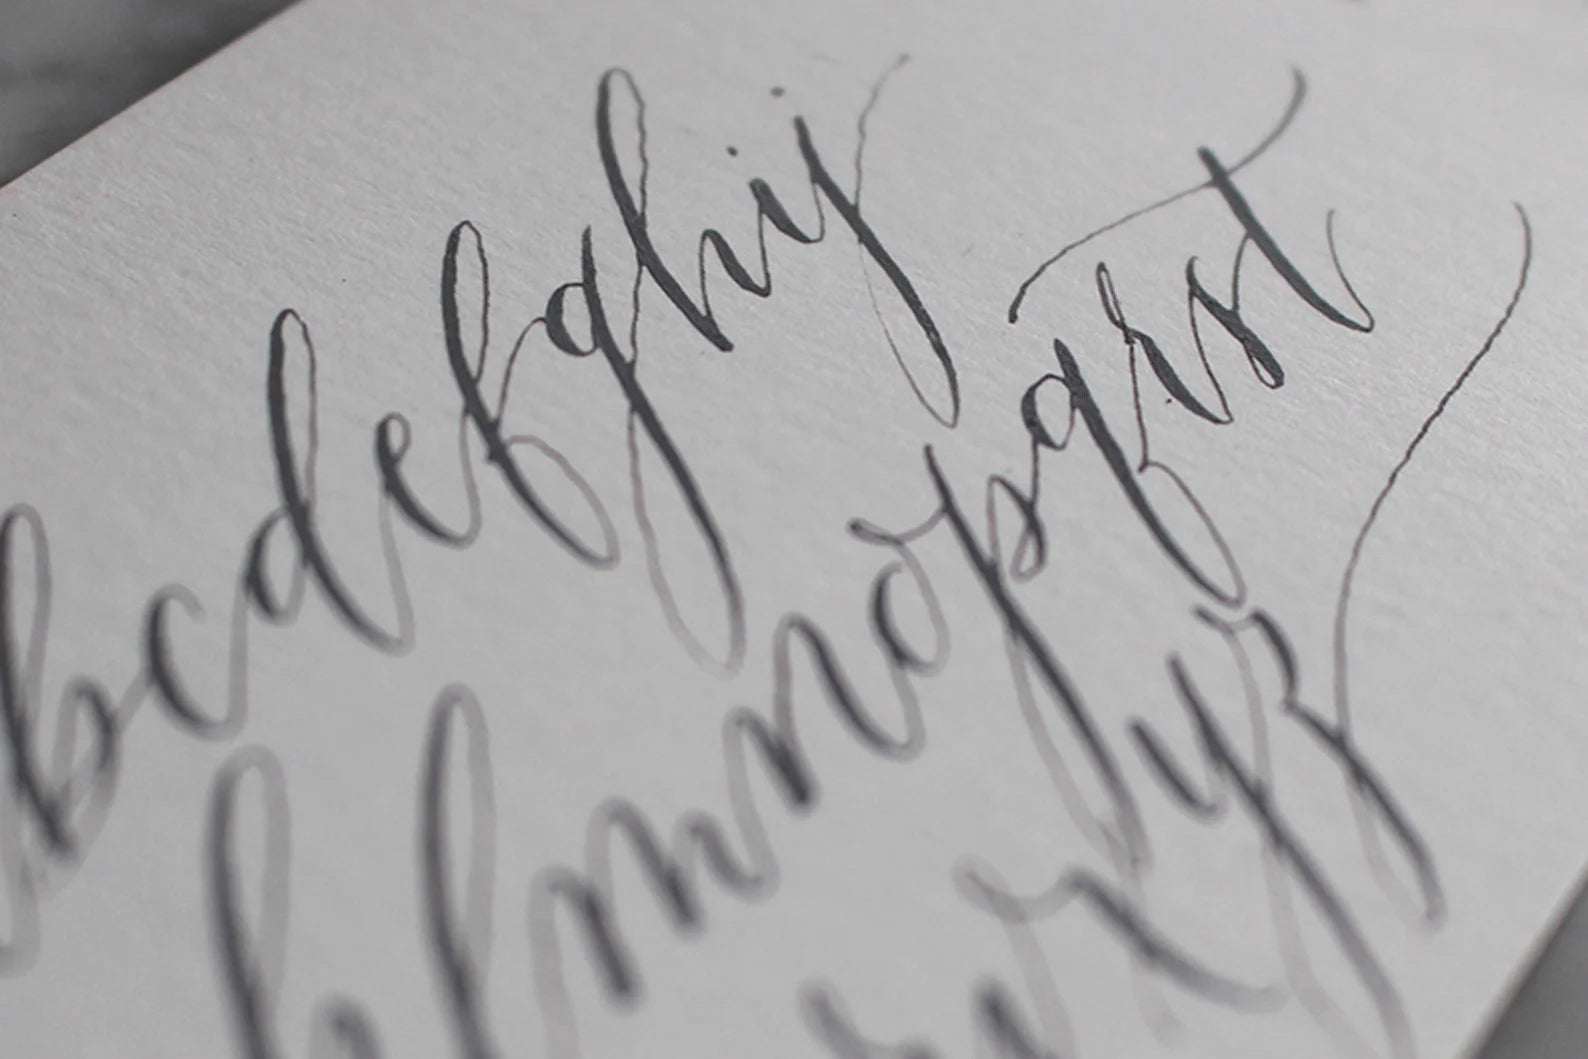 bcdefghij
klmnopqrst
wxyz